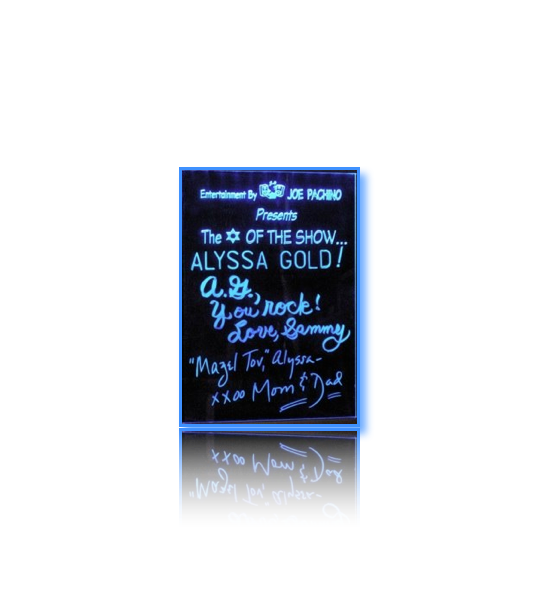 Entertainment By JOE PACHINO
Presents
The ✡ OF THE SHOW...
ALYSSA GOLD!
A.G.,
You rock!
Love, Sammy
"Mazel Tov," Alyssa-
xxoo Mom & Dad